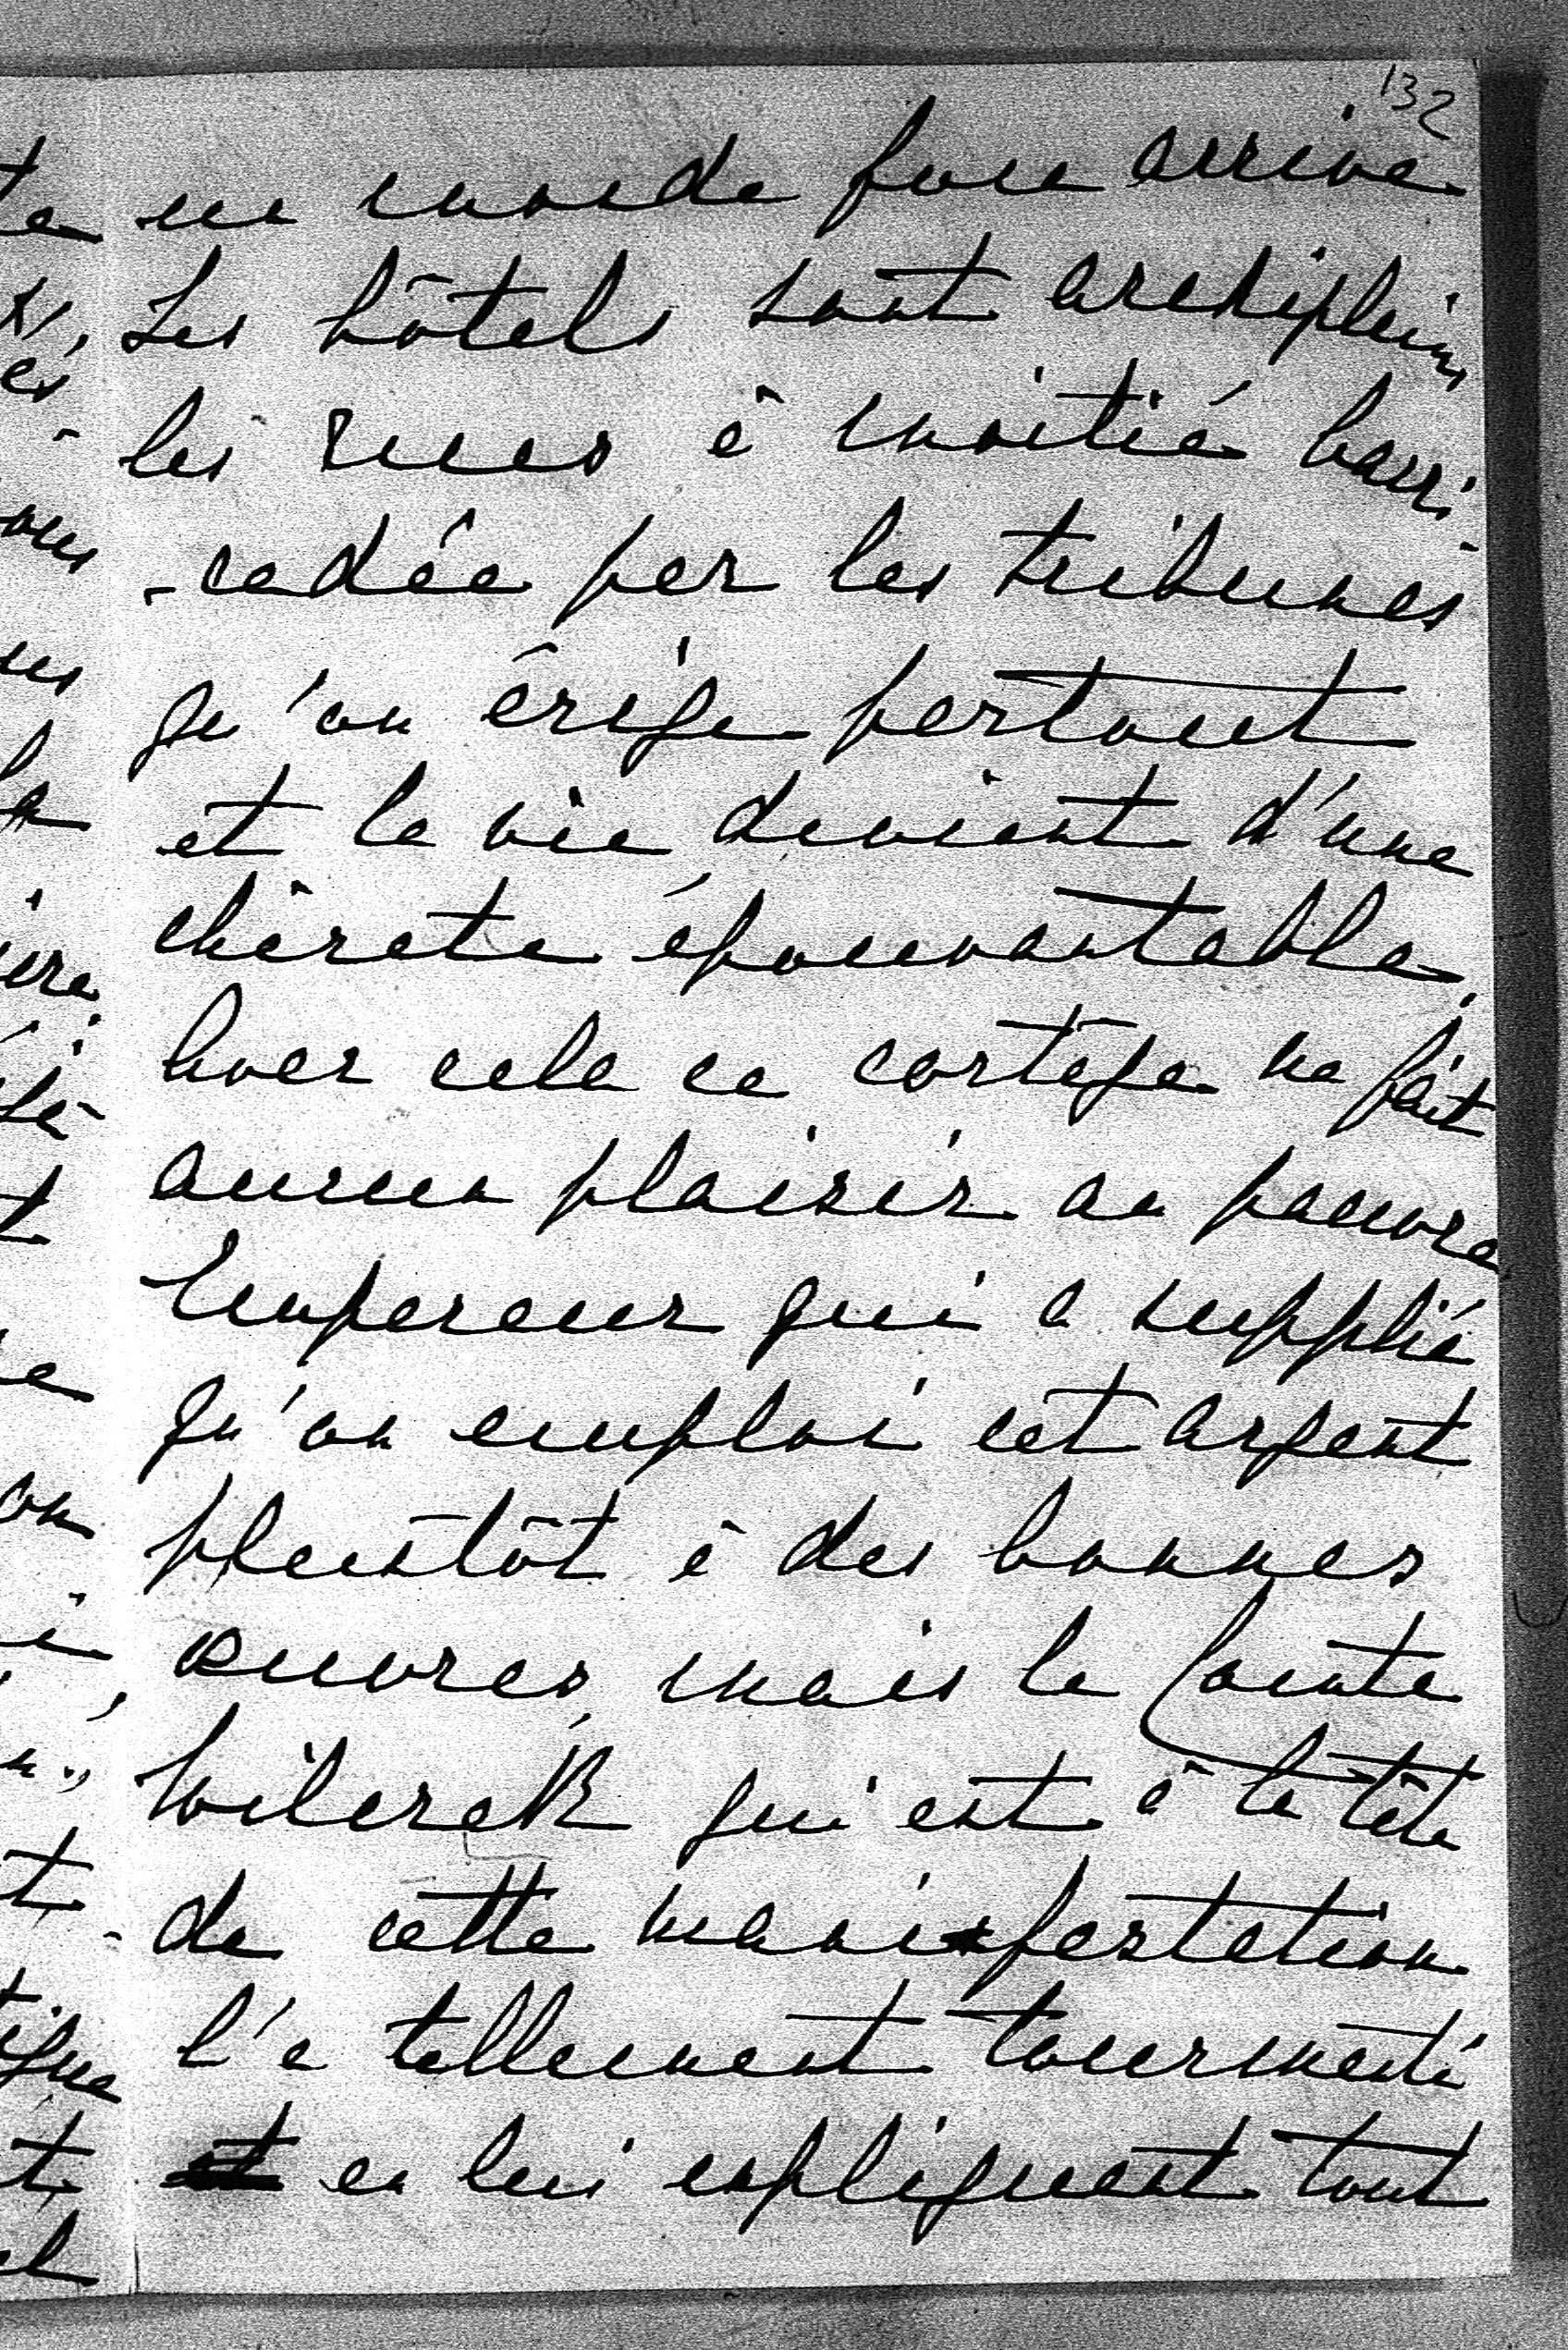 132
un monde fou arrive
Les hôtels sont archipleins
les rues à moitié barri
-cadée par les tribunes
qu'on érige partout
et la vie devient d'une
chèrete épouvantable,
hver cela ce cortège ne fait
aucun plaisir au pauvre
Empereur qui a supplié
qu'on emploi cet argent
pleustôt à des bonnes
œuvres, mais le Comte
Wilczek qui est à la tête
de cette manifestation
l'a tellement tourmenté
et en lui expliquant tout